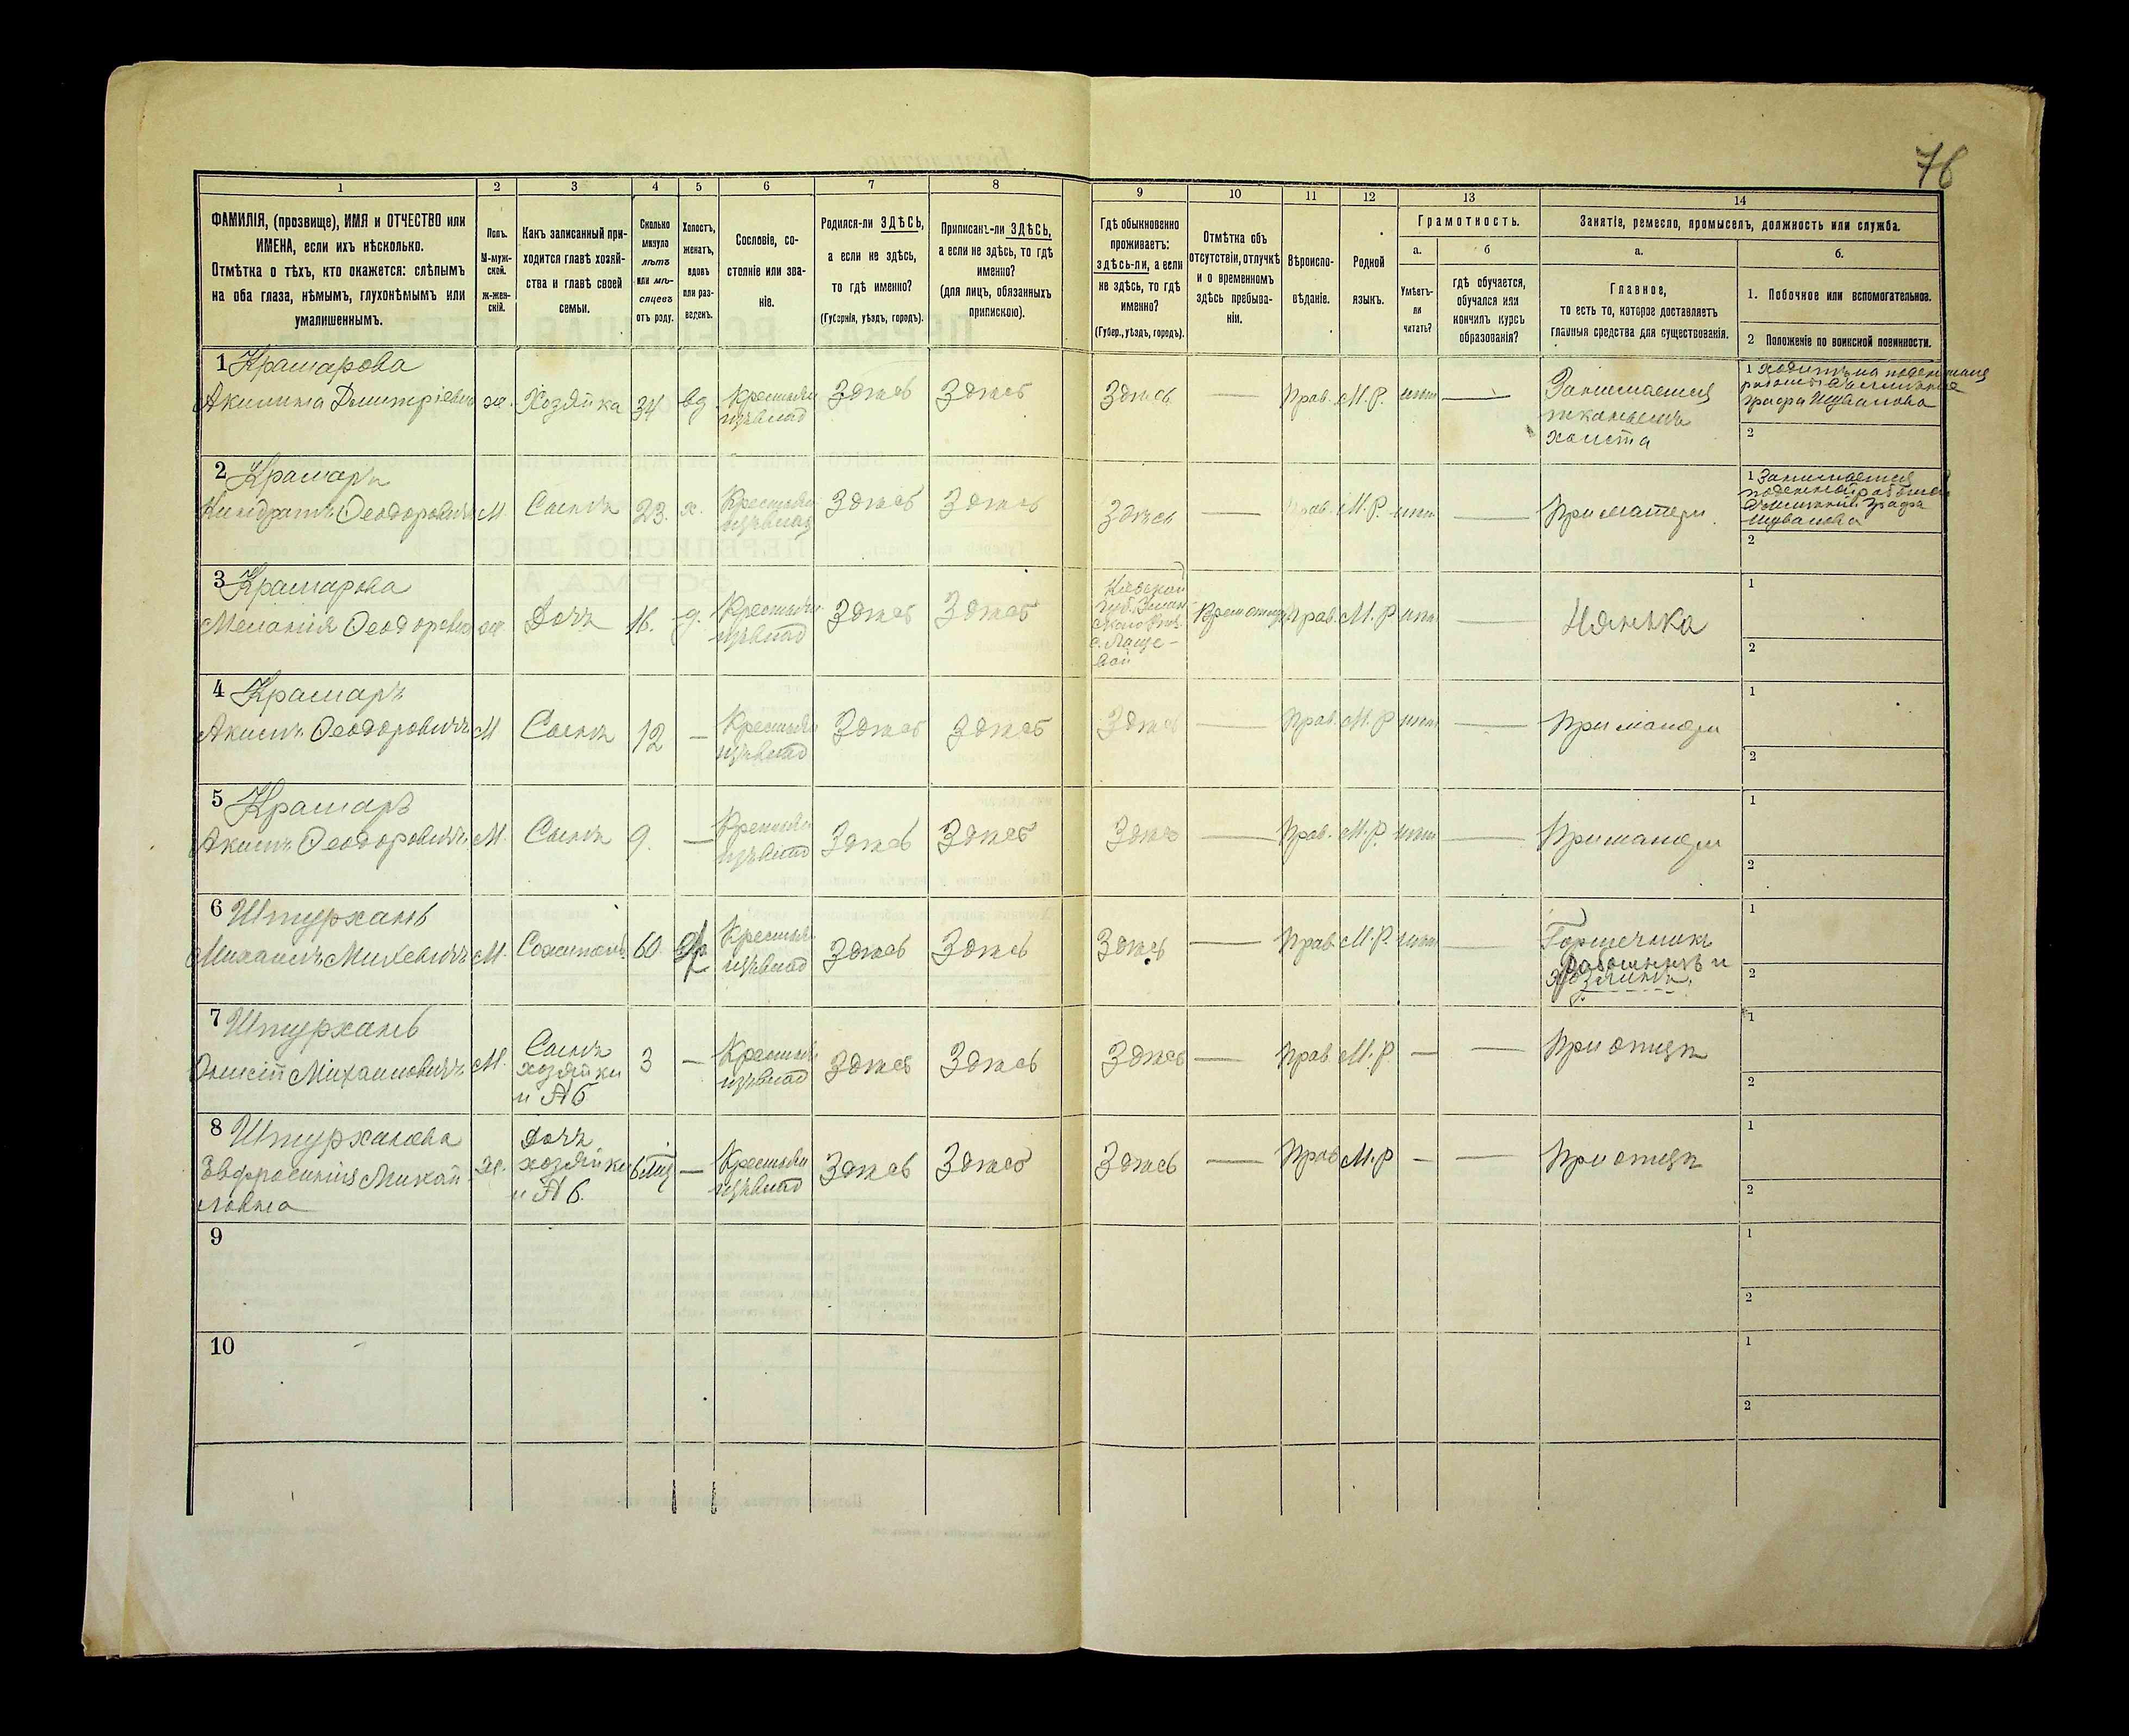 76
1 2 3 4 5 6 7 8 9 10 11 12 13 14
ФАМИЛІЯ, (прозвище), ИМЯ и ОТЧЕСТВО или
ИМЕНА, если ихъ нѣсколько.
Отмѣтка о тѣхъ, кто окажется: слѣпымъ
на оба глаза, нѣмымъ, глухонѣмымъ или
умалишеннымъ.
Полъ.
М-муж-
ской.
Ж-жен-
скій.
Какъ записанный при-
ходится главѣ хозяй-
ства и главѣ своей
семьи.
Сколько
минуло
лѣтъ
или мѣ-
сяцевъ
отъ роду.
Холостъ,
женатъ,
вдовъ
или раз-
веденъ.
Сословіе, со-
стояніе или зва-
ніе.
Родился-ли ЗДѢСЬ,
а если не здѣсь,
то гдѣ именно?
(Губернія, уѣздъ, городъ).
Приписанъ-ли ЗДѢСЬ,
а если не здѣсь, то гдѣ
именно?
(для лицъ, обязанныхъ
припискою).
Гдѣ обыкновенно
проживаетъ:
здѣсь-ли, а если
не здѣсь, то гдѣ
именно?
(Губер., уѣздъ, городъ).
Отмѣтка объ
отсутствіи, отлучкѣ
и о временномъ
здѣсь пребыва-
ніи.
Вѣроиспо-
вѣданіе.
Родной
языкъ.
Грамотность.
а.
Умѣетъ-
ли
читать?
б
гдѣ обучается,
обучался или
кончилъ курсъ
образованія?
Занятіе, ремесло, промыселъ, должность или служба.
а.
Главное,
то есть то, которое доставляетъ
главныя средства для существованія.
б.
1. Побочное или вспомогательное.
2 Положеніе по воинской повинности.
1 Крамарова
Акилина Димитріевна ж. Хозяйка 34 вд Крестьян
изъ влад Здѣсь Здѣсь Здѣсь — Прав. М.Р. нѣт —
Занимается
тканьемъ
холста
1 Ходитъ на поденныя
графа Шувалова
2
2 Крамарь
Киндратъ Ѳеодоровичъ М. Сынъ 23. х. Крестьян
изъ влад Здѣсь Здѣсь Здѣсь — Прав. М.Р. нѣт. — При матери.
1 Занимается
поденной работой
Графа
Шувалова
2
3 Крамарова
Меланія Ѳеодоревна ж. Дочь 16. д. Крестьян
изъ влад Здѣсь Здѣсь
Кіевской
губ.
Прав. М.Р нѣт — Нянька
1
2
4 Крамарь
Акимъ Ѳеодоровичъ М Сынъ 12 — Крестьян
изъ влад Здѣсь Здѣсь Здѣсь — Прав. М.Р нѣт — При матери
1
2
5 Крамарь
Акимъ Ѳеодоровичъ М. Сынъ 9. — Крестьян
изъ влад Здѣсь Здѣсь Здѣсь — Прав. М.Р. нѣт — При матери
1
2
6 Штурхань
Михаилъ Михевичъ М. Сожитель 60. Крестьян
изъ влад Здѣсь Здѣсь Здѣсь — Прав. М.Р. нѣт —
Горшечникъ
работникъ и
хозяинъ.
1
2
7 Штурхань
Онисій Михаиловичъ М. Сынъ
хозяйки
и №6
3 — Крестьян
изъ влад Здѣсь Здѣсь Здѣсь — Прав М.Р. — — При отцѣ
1
2
8 Штурханева
Евфросинія Михай-
ловна
ж. Дочь
хозяйки
и №6.
6 мѣц — Крестьян
изъ влад Здѣсь Здѣсь Здѣсь — Прав М.Р — — При отцѣ
1
2
9
1
2
10
1
2